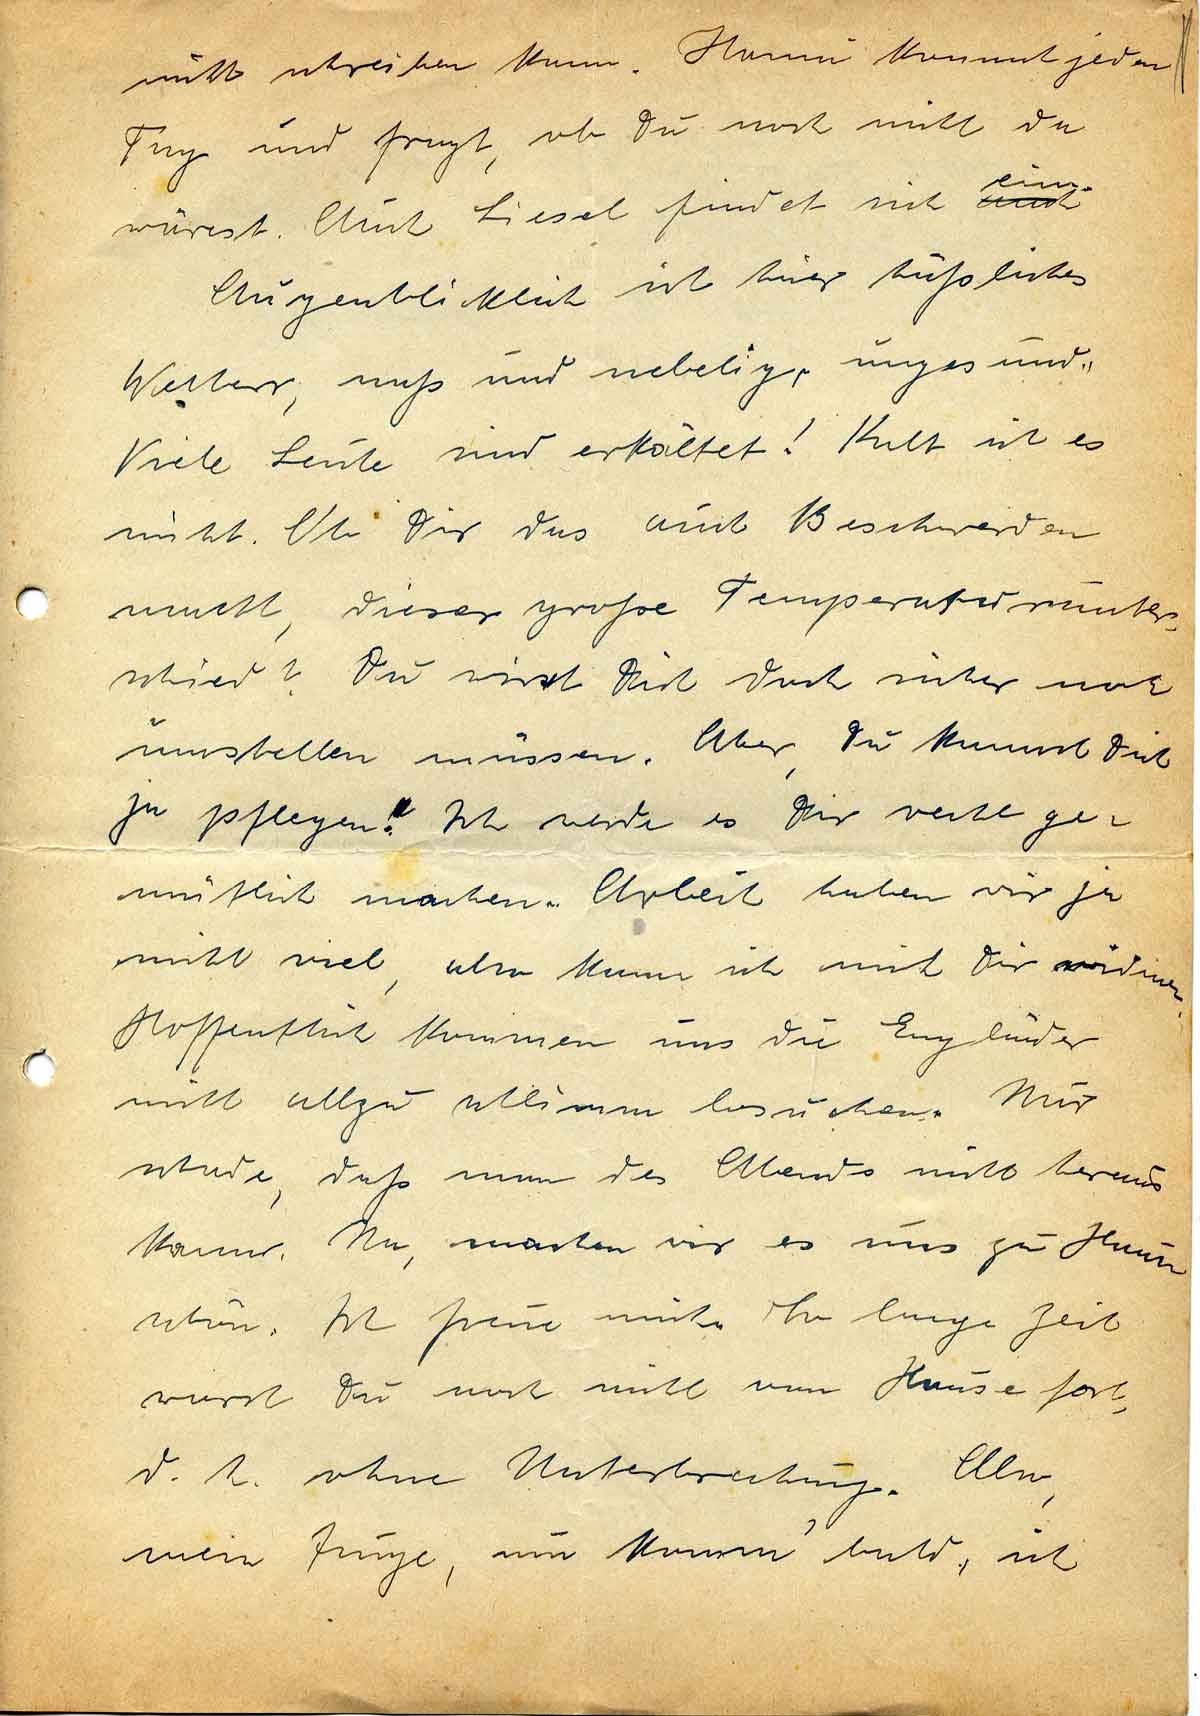 nicht schreiben kann. Hanni kommt jeden
Tag und fragt, ob Du noch nicht da
wärest. Auch Liesel findet sich ein.
Augenblicklich ist hier häßliches
Wetter, naß und nebelig, ungesund.
Viele Leute sind erkältet! Kalt ist es
nicht. Ob Dir das auch Beschwerden
macht, dieser große Temperaturunter-
schied? Du wirst Dich doch sicher noch
umstellen müssen. Aber, Du kannst Dich
ja pflegen! Ich werde es Dir recht ge-
mütlich machen. Arbeit haben wir ja
nicht viel, also kann ich mich Dir widmen.
Hoffentlich kommen uns die Engländer
nicht allzu schlimm besuchen. Nur
schade, daß man des Abends nicht heraus
kann. Na, machen wir es uns zu Hause
schön. Ich freue mich. So lange Zeit
warst Du noch nicht von Hause fort,
d. h. ohne Unterbrechung. Also,
mein Junge, nun komm' bald, ich